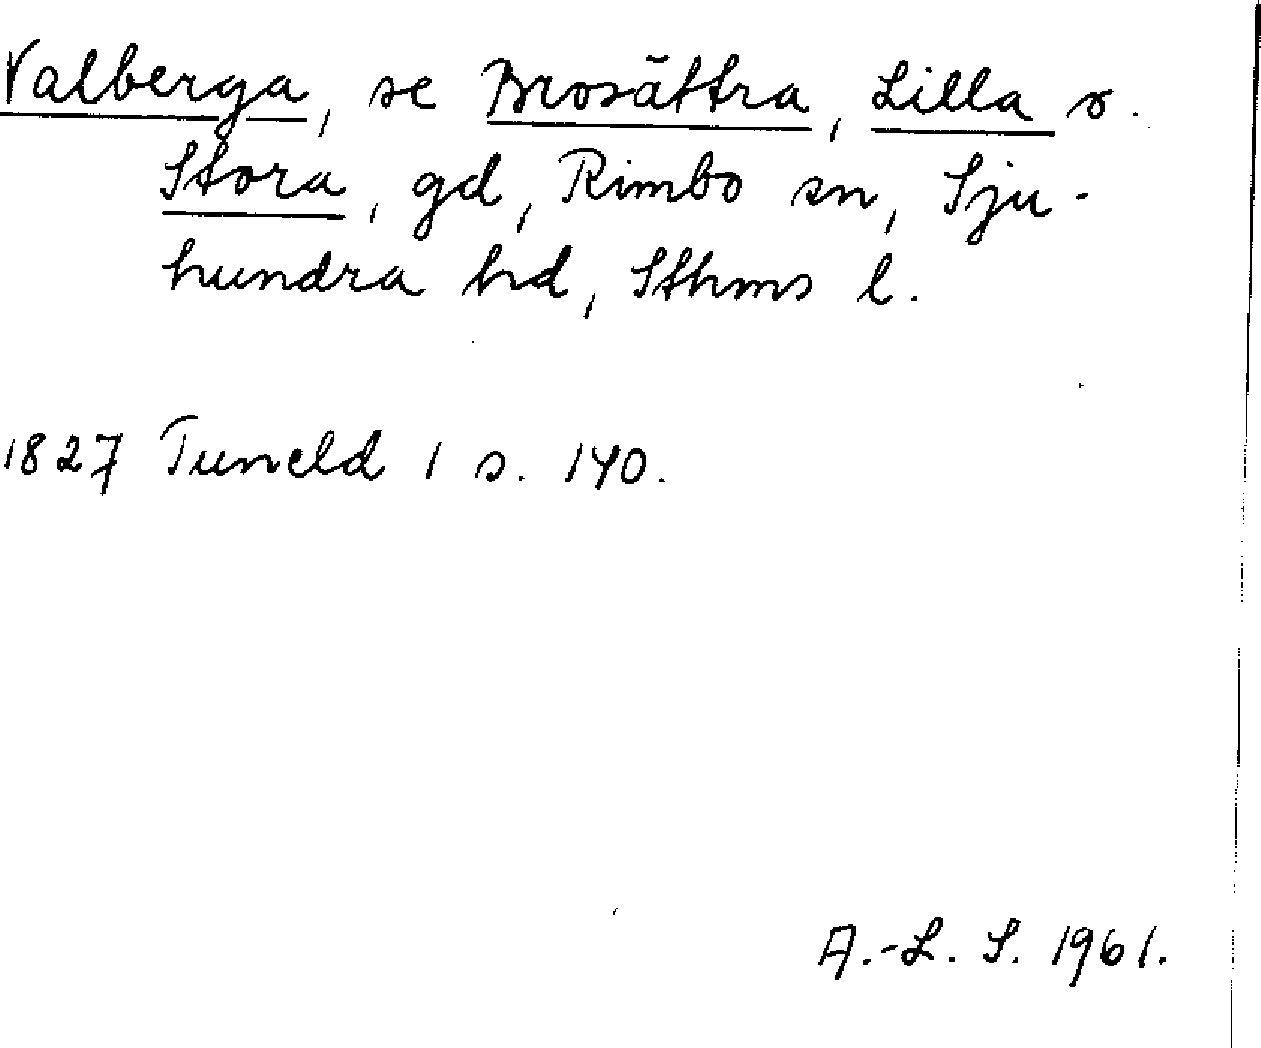 Valberga, se Brosättra, Lilla o.
Stora, gd, Rimbo sn, Sju-
hundra hd, Sthms l.
1827 Tuneld 1 s. 140.
A.-L. S. 1961.